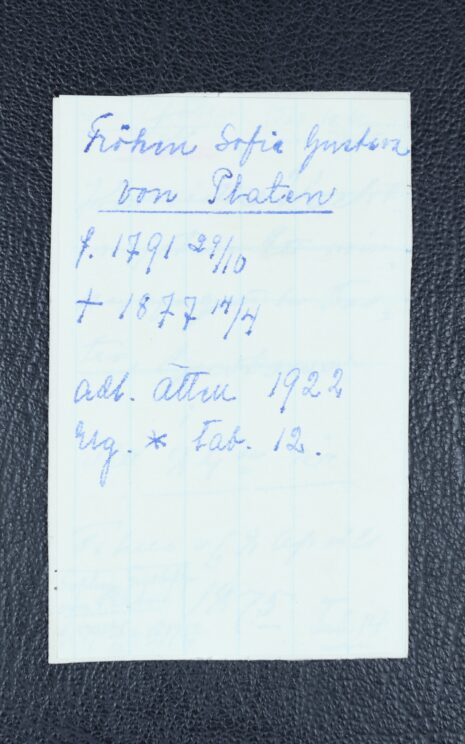 Fröken Sofia Gustava
von Platen
f. 1791 29/10
† 1877 14/4
adl. ätten 1922
Elg. * Tab. 12.